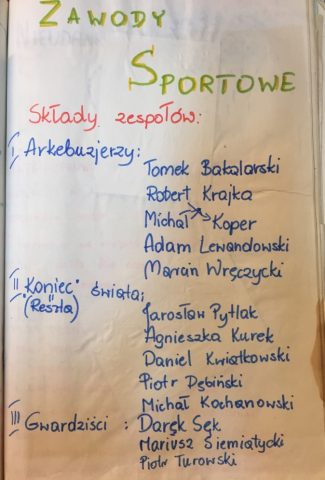 ZAWODY
SPORTOWE
Składy zespołów:
I Arkebuzjerzy:
Tomek Bakalarski
Robert Krajka
Michał Koper
Adam Lewandowski
Marcin Wręczycki
II "Koniec" świata;
(Reszta)
Jarosław Pytlak
Agnieszka Kurek
Daniel Kwiatkowski
Piotr Dębiński
Michał Kochanowski
III Gwardziści : Darek Sęk
Mariusz Siemiątycki
Piotr Turowski